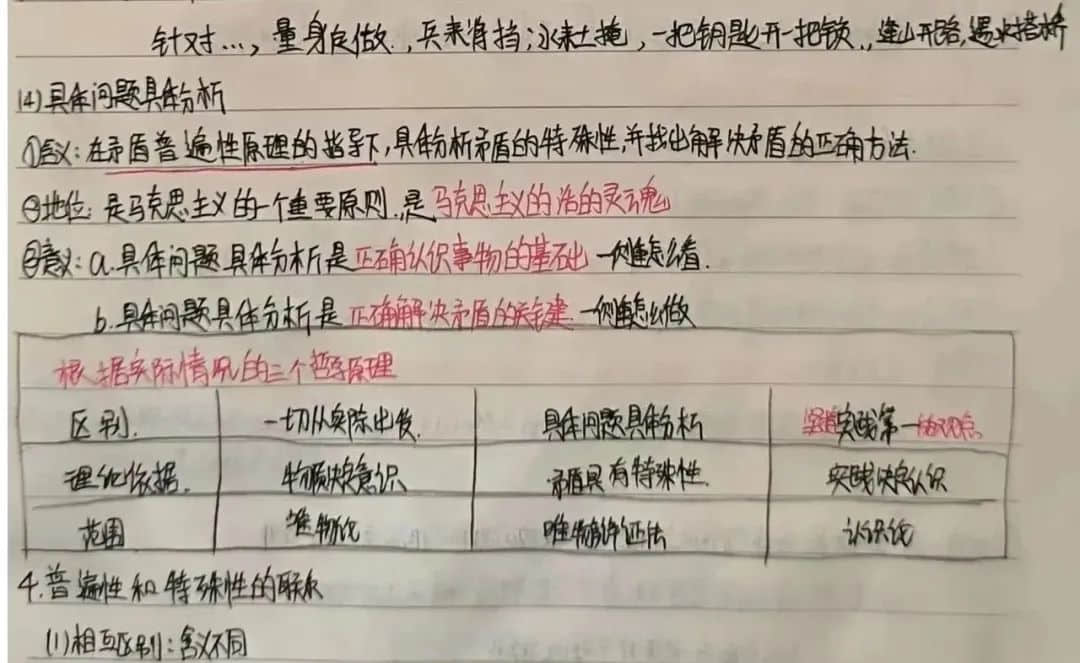 针对…，量身定做.，兵来将挡；水来土掩，一把钥匙开一把锁.，逢山开路，遇水搭桥
(4)具体问题具体分析
①含义：在矛盾普遍性原理的指导下，具体分析矛盾的特殊性，并找出解决矛盾的正确方法.
②地位：是马克思主义的一个重要原则.是马克思主义的活的灵魂
③意义：a.具体问题具体分析是正确认识事物的基础—侧重怎么看.
b.具体问题具体分析是正确解决矛盾的关键—侧重怎么做
根据实际情况的三个哲学原理
区别. 一切从实际出发. 具体问题具体分析 坚持实践第一的观点.
理论依据. 物质决定意识 矛盾具有特殊性. 实践决定认识
范围 唯物论 唯物辩证法 认识论
4.普遍性和特殊性的联系
(1)相互区别：含义不同